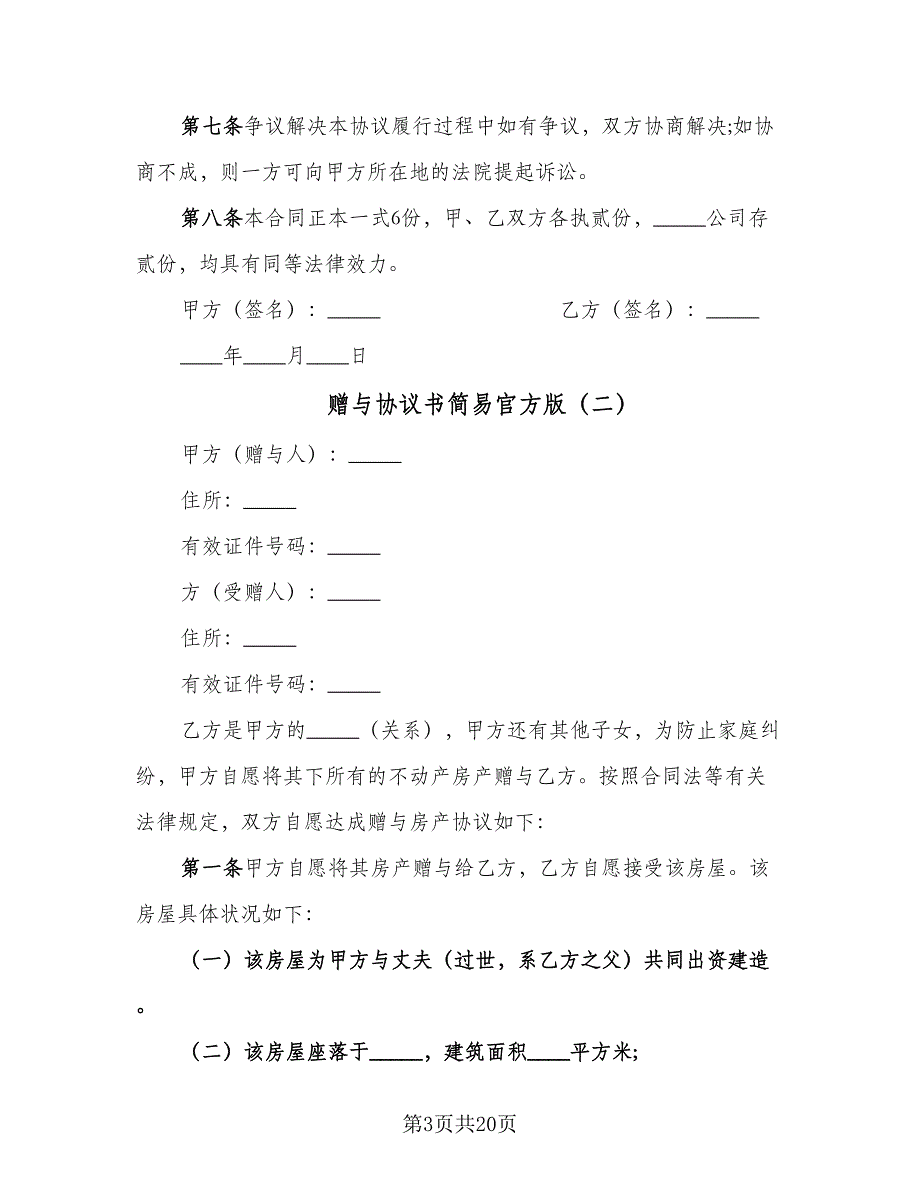 第七条争议解决本协议履行过程中如有争议，双方协商解决;如协
商不成，则一方可向甲方所在地的法院提起诉讼。
第八条本合同正本一式6份，甲、乙双方各执贰份，_____公司存
贰份，均具有同等法律效力。
甲方（签名）：_____ 乙方（签名）：_____
____年____月____日
赠与协议书简易官方版（二）
甲方（赠与人）：_____
住所：_____
有效证件号码：_____
方（受赠人）：_____
住所：_____
有效证件号码：_____
乙方是甲方的_____（关系），甲方还有其他子女，为防止家庭纠
纷，甲方自愿将其下所有的不动产房产赠与乙方。按照合同法等有关
法律规定，双方自愿达成赠与房产协议如下：
第一条甲方自愿将其房产赠与给乙方，乙方自愿接受该房屋。该
房屋具体状况如下：
（一）该房屋为甲方与丈夫（过世，系乙方之父）共同出资建造
。
（二）该房屋座落于_____，建筑面积____平方米;
第3页共20页